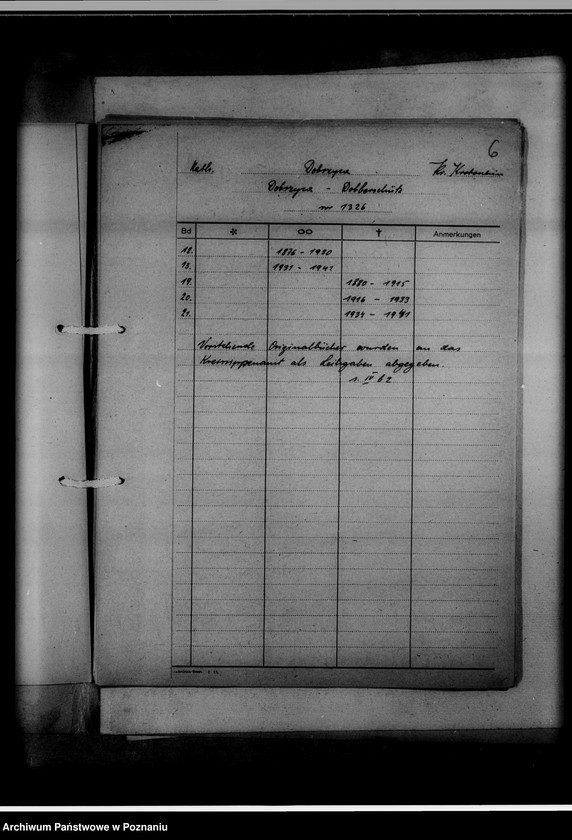 6
Kath. Dobrzyca Kr. Krotoschin
Dobrzyca - Dobberschütz
nr 1326
Bd * ∞ † Anmerkungen
12. 1876 - 1930
13. 1931 - 1941
19. 1880 - 1915
20. 1916 - 1933
21. 1934 - 1941
Vorstehende Originalbücher wurden an das
Kreissippenamt als Leihgaben abgegeben.
s. IV b 2
Archiwum Państwowe w Poznaniu